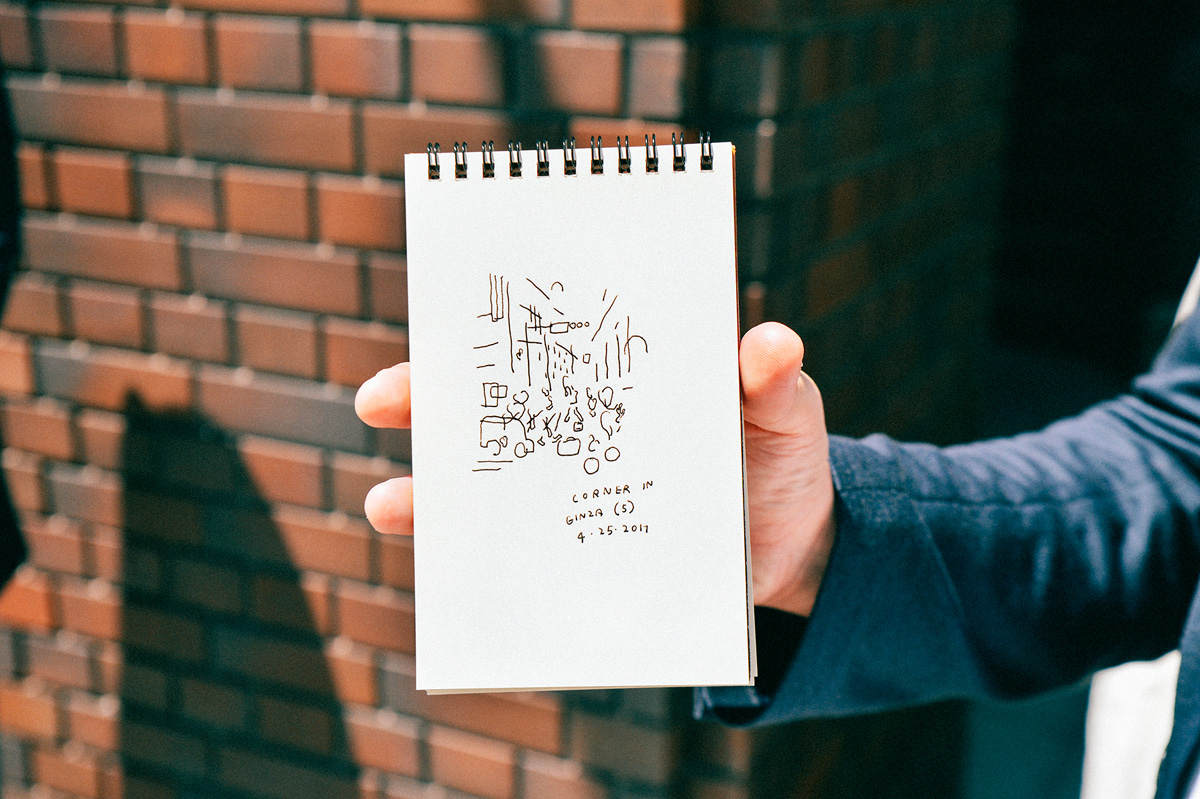 CORNER IN
GINZA (5)
4.25.2017